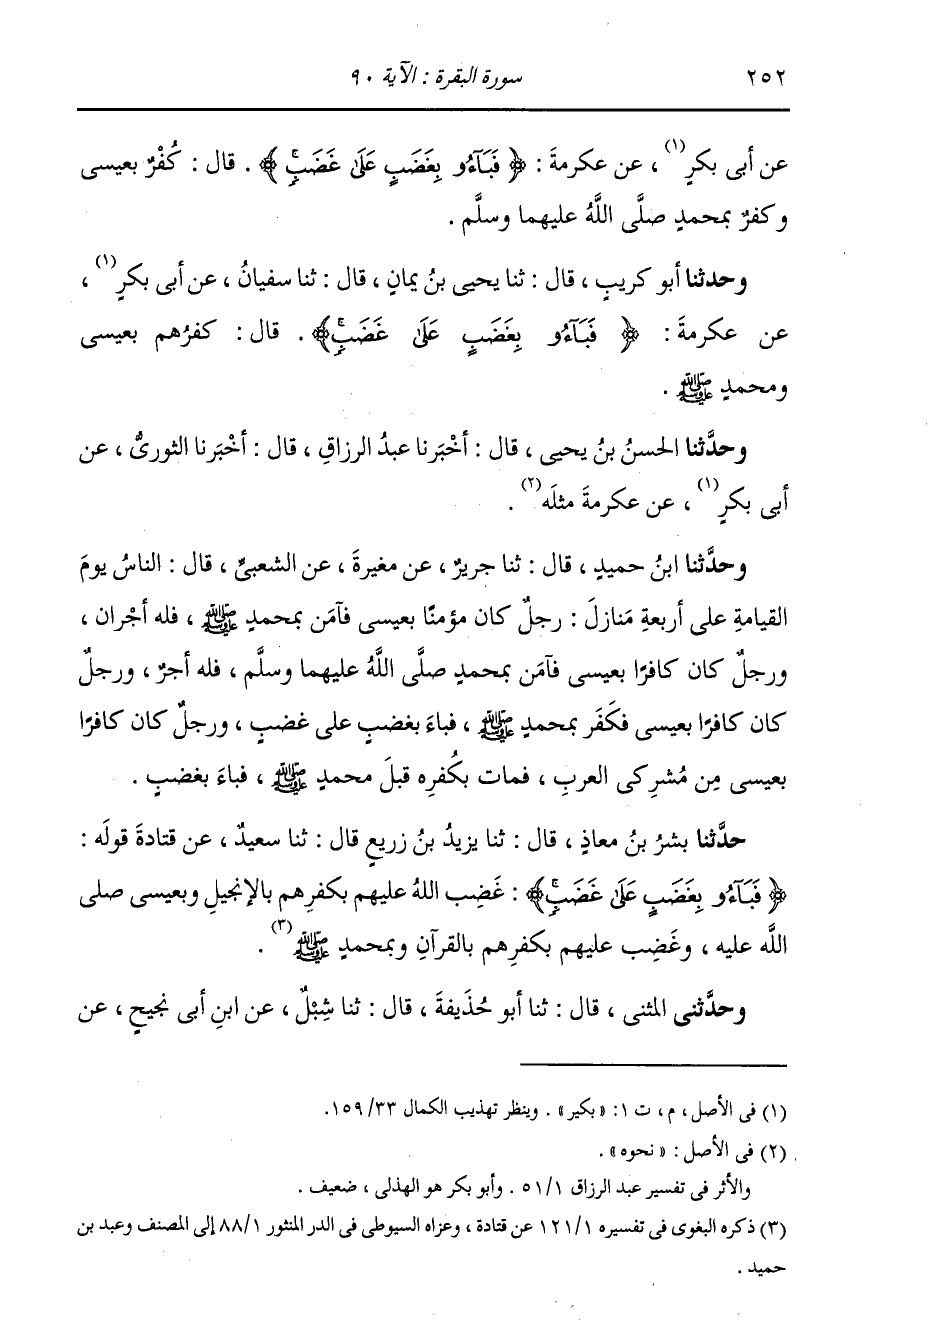 ٢٥٢ سورة البقرة : الآية ٩٠
عن أبى بكرٍ(١) ، عن عكرمةَ : ﴿ فَبَآءُو بِغَضَبٍ عَلَىٰ غَضَبٍۚ ﴾ . قال : كُفْرٌ بعيسى
وكفرٌ بمحمدٍ صلَّى اللَّهُ عليهما وسلَّم .
وحدثنا أبو كريبٍ ، قال : ثنا يحيى بنُ يمانٍ ، قال : ثنا سفيانُ ، عن أبى بكرٍ(١) ،
عن عكرمةَ : ﴿ فَبَآءُو بِغَضَبٍ عَلَىٰ غَضَبٍۚ ﴾ . قال : كفرُهم بعيسى
ومحمدٍ ﷺ .
وحدَّثنا الحسنُ بنُ يحيى ، قال : أخْبَرنا عبدُ الرزاقِ ، قال : أخْبَرنا الثورىُّ ، عن
أبى بكرٍ(١) ، عن عكرمةَ مثلَه(٢) .
وحدَّثنا ابنُ حميدٍ ، قال : ثنا جريرٌ ، عن مغيرةَ ، عن الشعبىِّ ، قال : الناسُ يومَ
القيامةِ على أربعةِ مَنازلَ : رجلٌ كان مؤمنًا بعيسى فآمَن بمحمدٍ ﷺ ، فله أجْران ،
ورجلٌ كان كافرًا بعيسى فآمَن بمحمدٍ صلَّى اللَّهُ عليهما وسلَّم ، فله أجرٌ ، ورجلٌ
كان كافرًا بعيسى فكَفَر بمحمدٍ ﷺ ، فباءَ بغضبٍ على غضبٍ ، ورجلٌ كان كافرًا
بعيسى مِن مُشركى العربِ ، فمات بكُفرِه قبلَ محمدٍ ﷺ ، فباءَ بغضبٍ .
حدَّثنا بشرُ بنُ معاذٍ ، قال : ثنا يزيدُ بنُ زريعٍ قال : ثنا سعيدٌ ، عن قتادةَ قولَه :
﴿ فَبَآءُو بِغَضَبٍ عَلَىٰ غَضَبٍۚ ﴾ : غَضِب اللهُ عليهم بكفرِهم بالإنجيلِ وبعيسى صلى
اللَّه عليه ، وغَضِب عليهم بكفرِهم بالقرآنِ وبمحمدٍ ﷺ(٣) .
وحدَّثنى المثنى ، قال : ثنا أبو حُذَيفةَ ، قال : ثنا شِبْلٌ ، عن ابنِ أبى نجيحٍ ، عن
(١) فى الأصل ، م ، ت ١ : «بكير» . وينظر تهذيب الكمال ٣٣/ ١٥٩.
(٢) فى الأصل : « نحوه» .
والأثر فى تفسير عبد الرزاق ٥١/١ . وأبو بكر هو الهذلى ، ضعيف .
(٣) ذكره البغوى فى تفسيره ١٢١/١ عن قتادة ، وعزاه السيوطى فى الدر المنثور ٨٨/١ إلى المصنف وعبد بن
حميد .